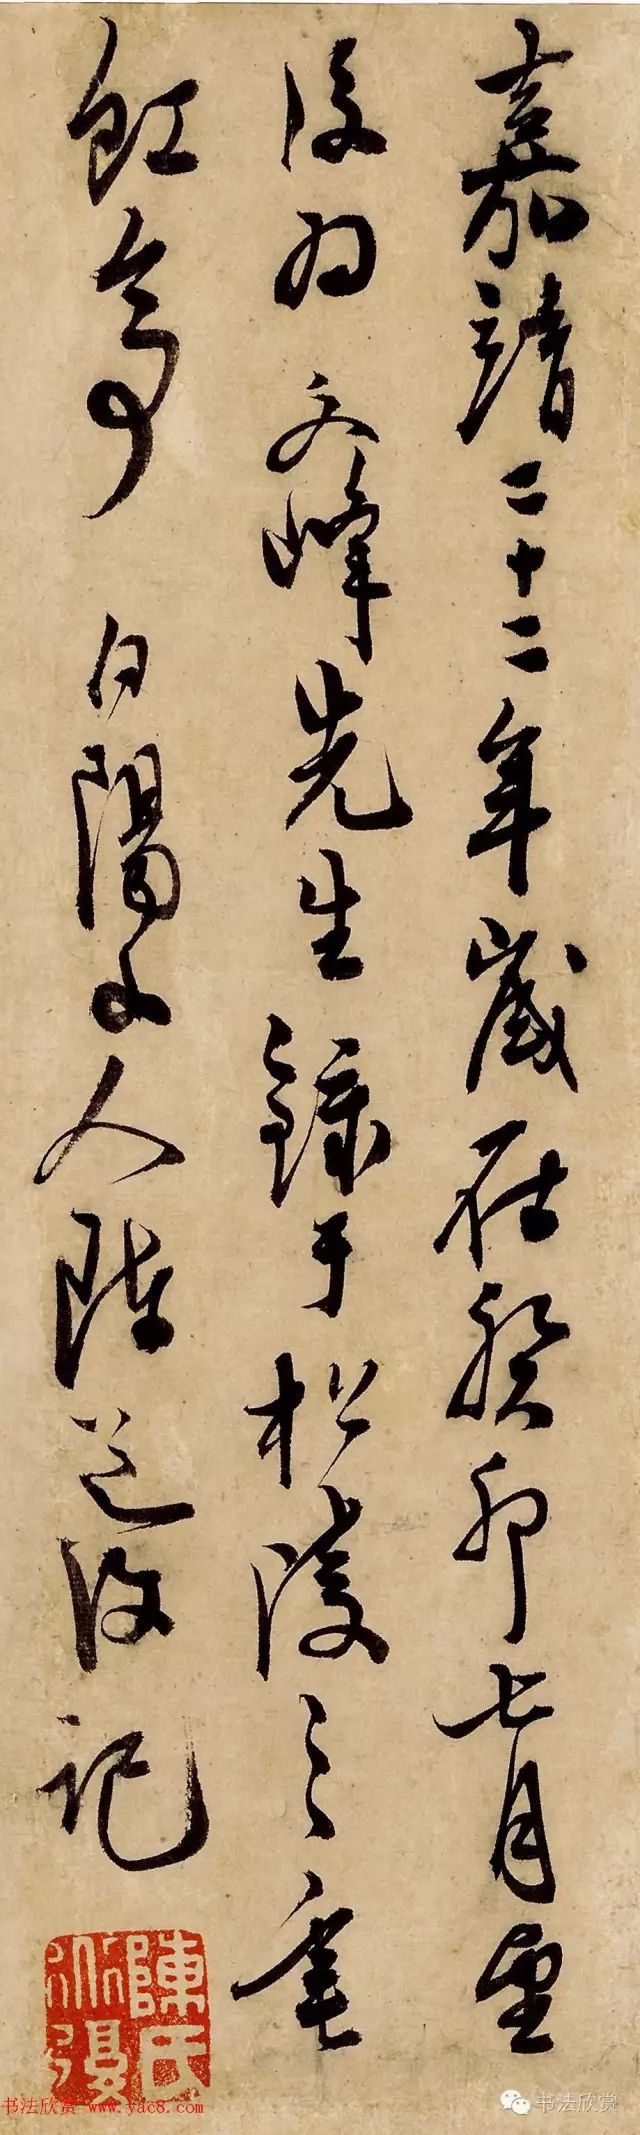 嘉靖二十二年歲在癸卯七月望
後為文峰先生録于松陵之垂
虹亭 白陽山人陳道復記
陳氏道復
书法欣赏 www.yac8.com
书法欣赏